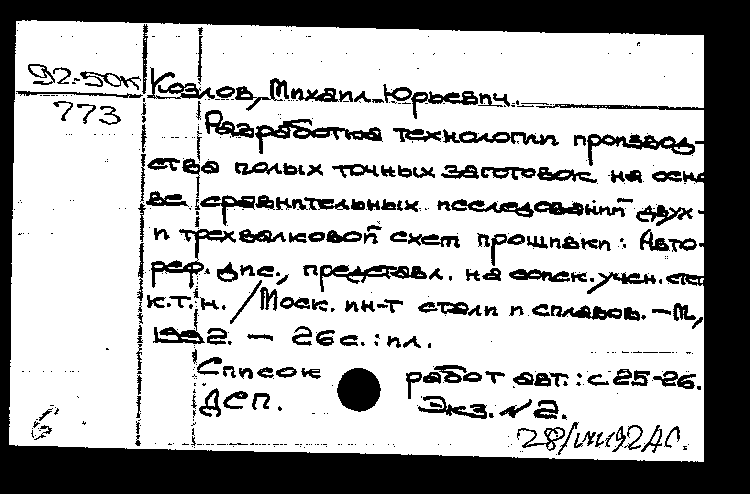 92-50к Козлов, Михаил Юрьевич.
773
Разработка технологии производ-
ства полых точных заготовок на осно
ве сравнительных исследований двух-
и трехвалковой схем прошивки: Авто-
реф. дис., представл. на соиск. учен. степ
к.т.н. / Моск. ин-т стали и сплавов. — М.,
1992. — 26 с.: ил.
Список работ авт.: с 25-26.
ДСП. Экз. № 2.
6 28/VIII92